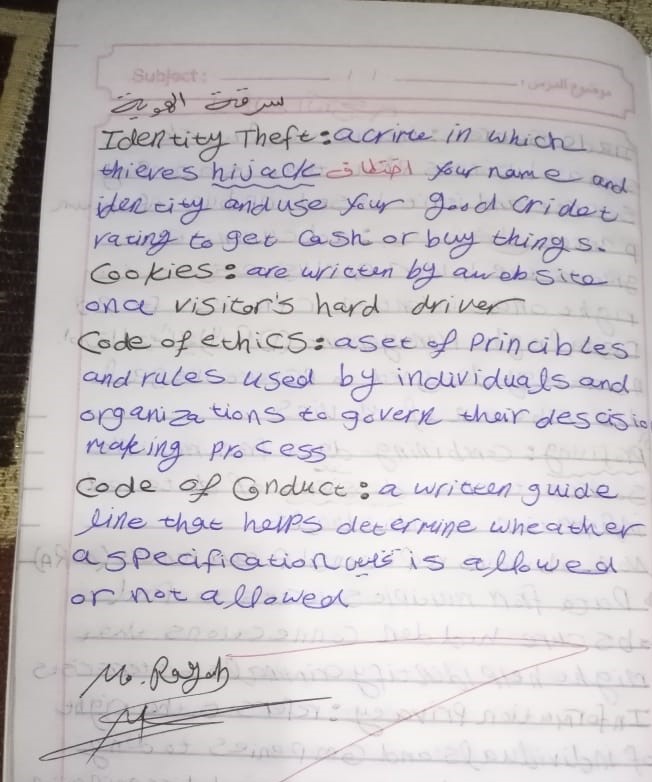 Subject: / /
موضوع الدرس:
سرقة الهوية
Identity Theft: a crime in which
thieves hijack اختطاف your name and
identity and use your good cridet
rating to get cash or buy things.
Cookies: are written by a website
on a visitor's hard driver
Code of ethics: a set of princibles
and rules used by individuals and
organizations to govern their descisio
making process
Code of Conduct: a written guide
line that helps determine wheather
a specification is allowed
or not allowed
M. Rajab